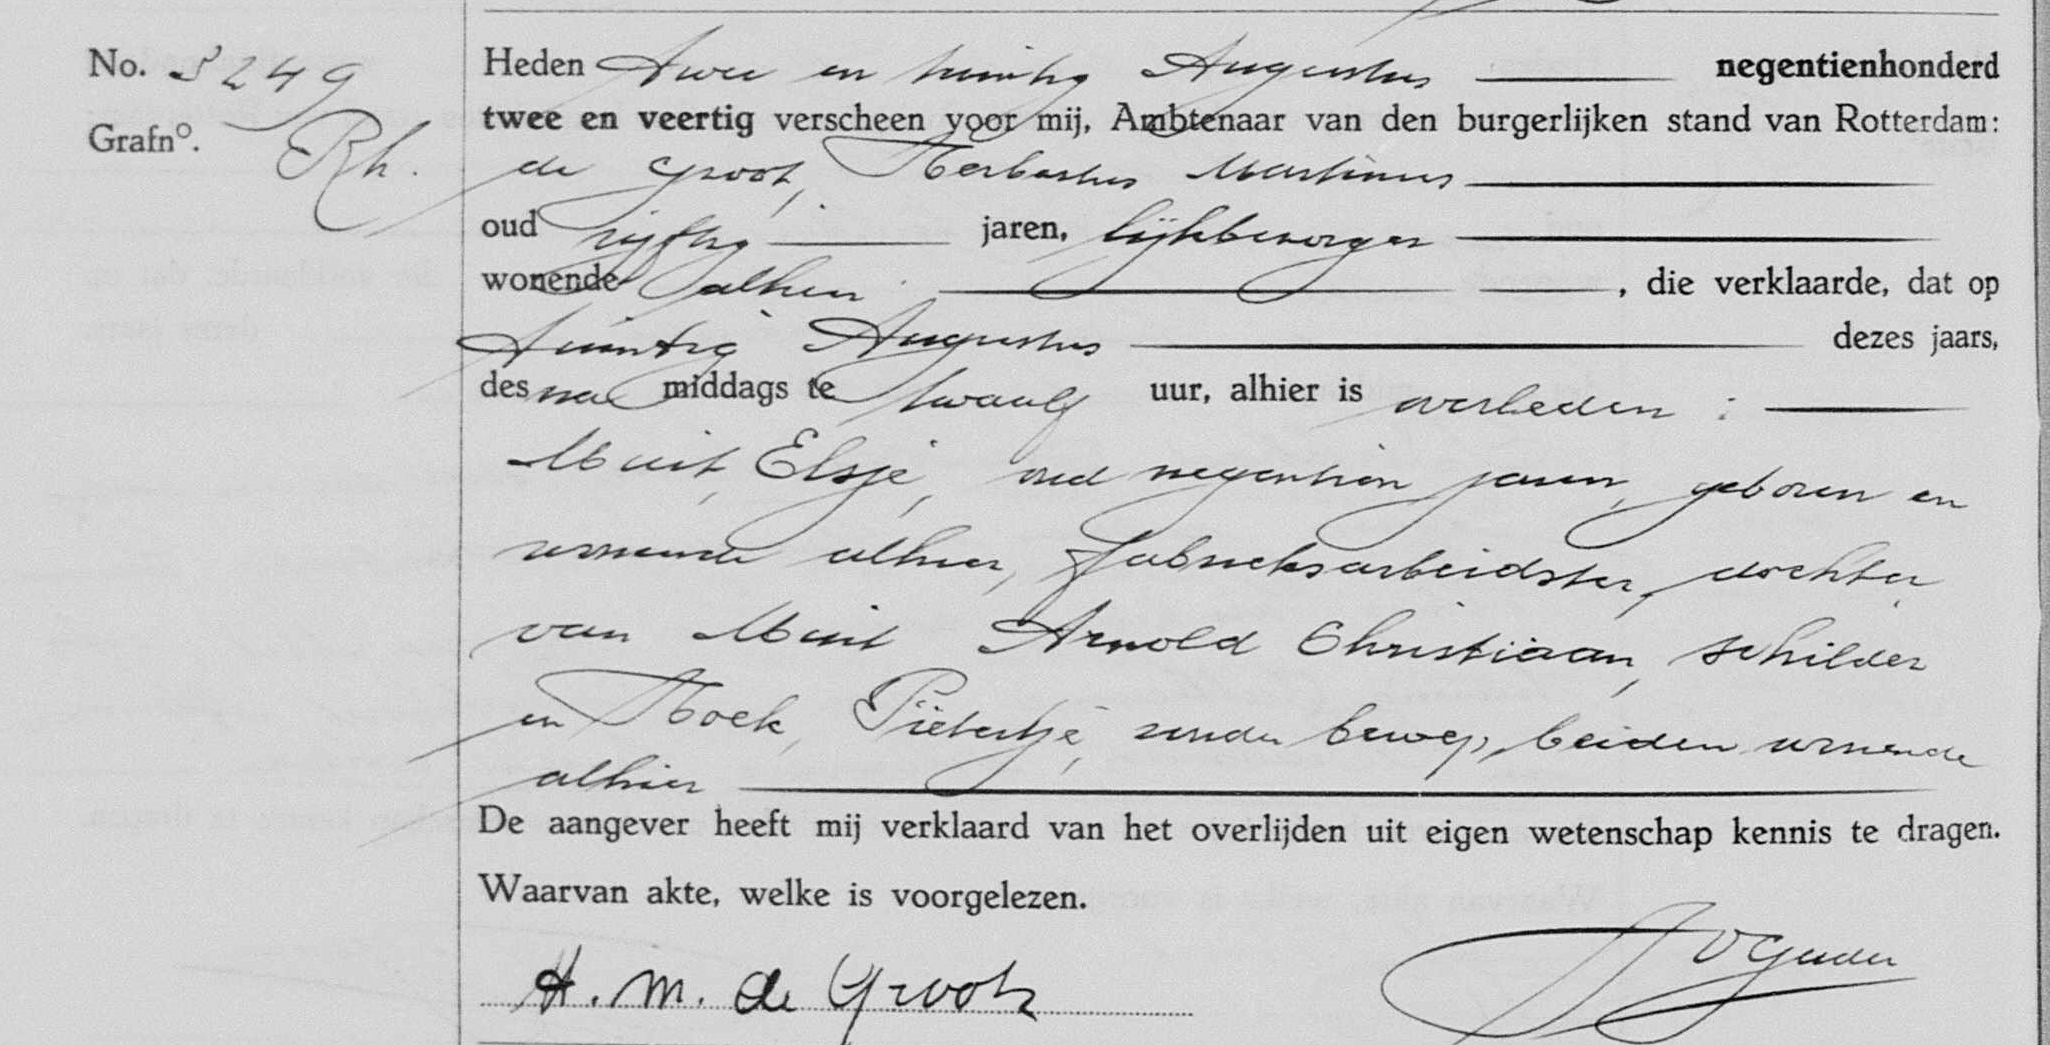 No. 5249
Grafno. Rh.
Heden Twee en twintig Augustus negentienhonderd
twee en veertig verscheen voor mij, Ambtenaar van den burgerlijken stand van Rotterdam:
de Groot, Herbartus Martinus
oud vijftig jaren, lijkbezorger
wonende alhier, die verklaarde, dat op
Twintig Augustus dezes jaars,
des na middags te twaalf uur, alhier is overleden:
Muit, Elsje, oud negentien jaren, geboren en
wonende alhier, fabrieksarbeidster, dochter
van Muit Arnold Christiaan, schilder
en Hoek, Pietertje, zonder beroep, beiden wonende
alhier
De aangever heeft mij verklaard van het overlijden uit eigen wetenschap kennis te dragen.
Waarvan akte, welke is voorgelezen.
H. M. de Groot